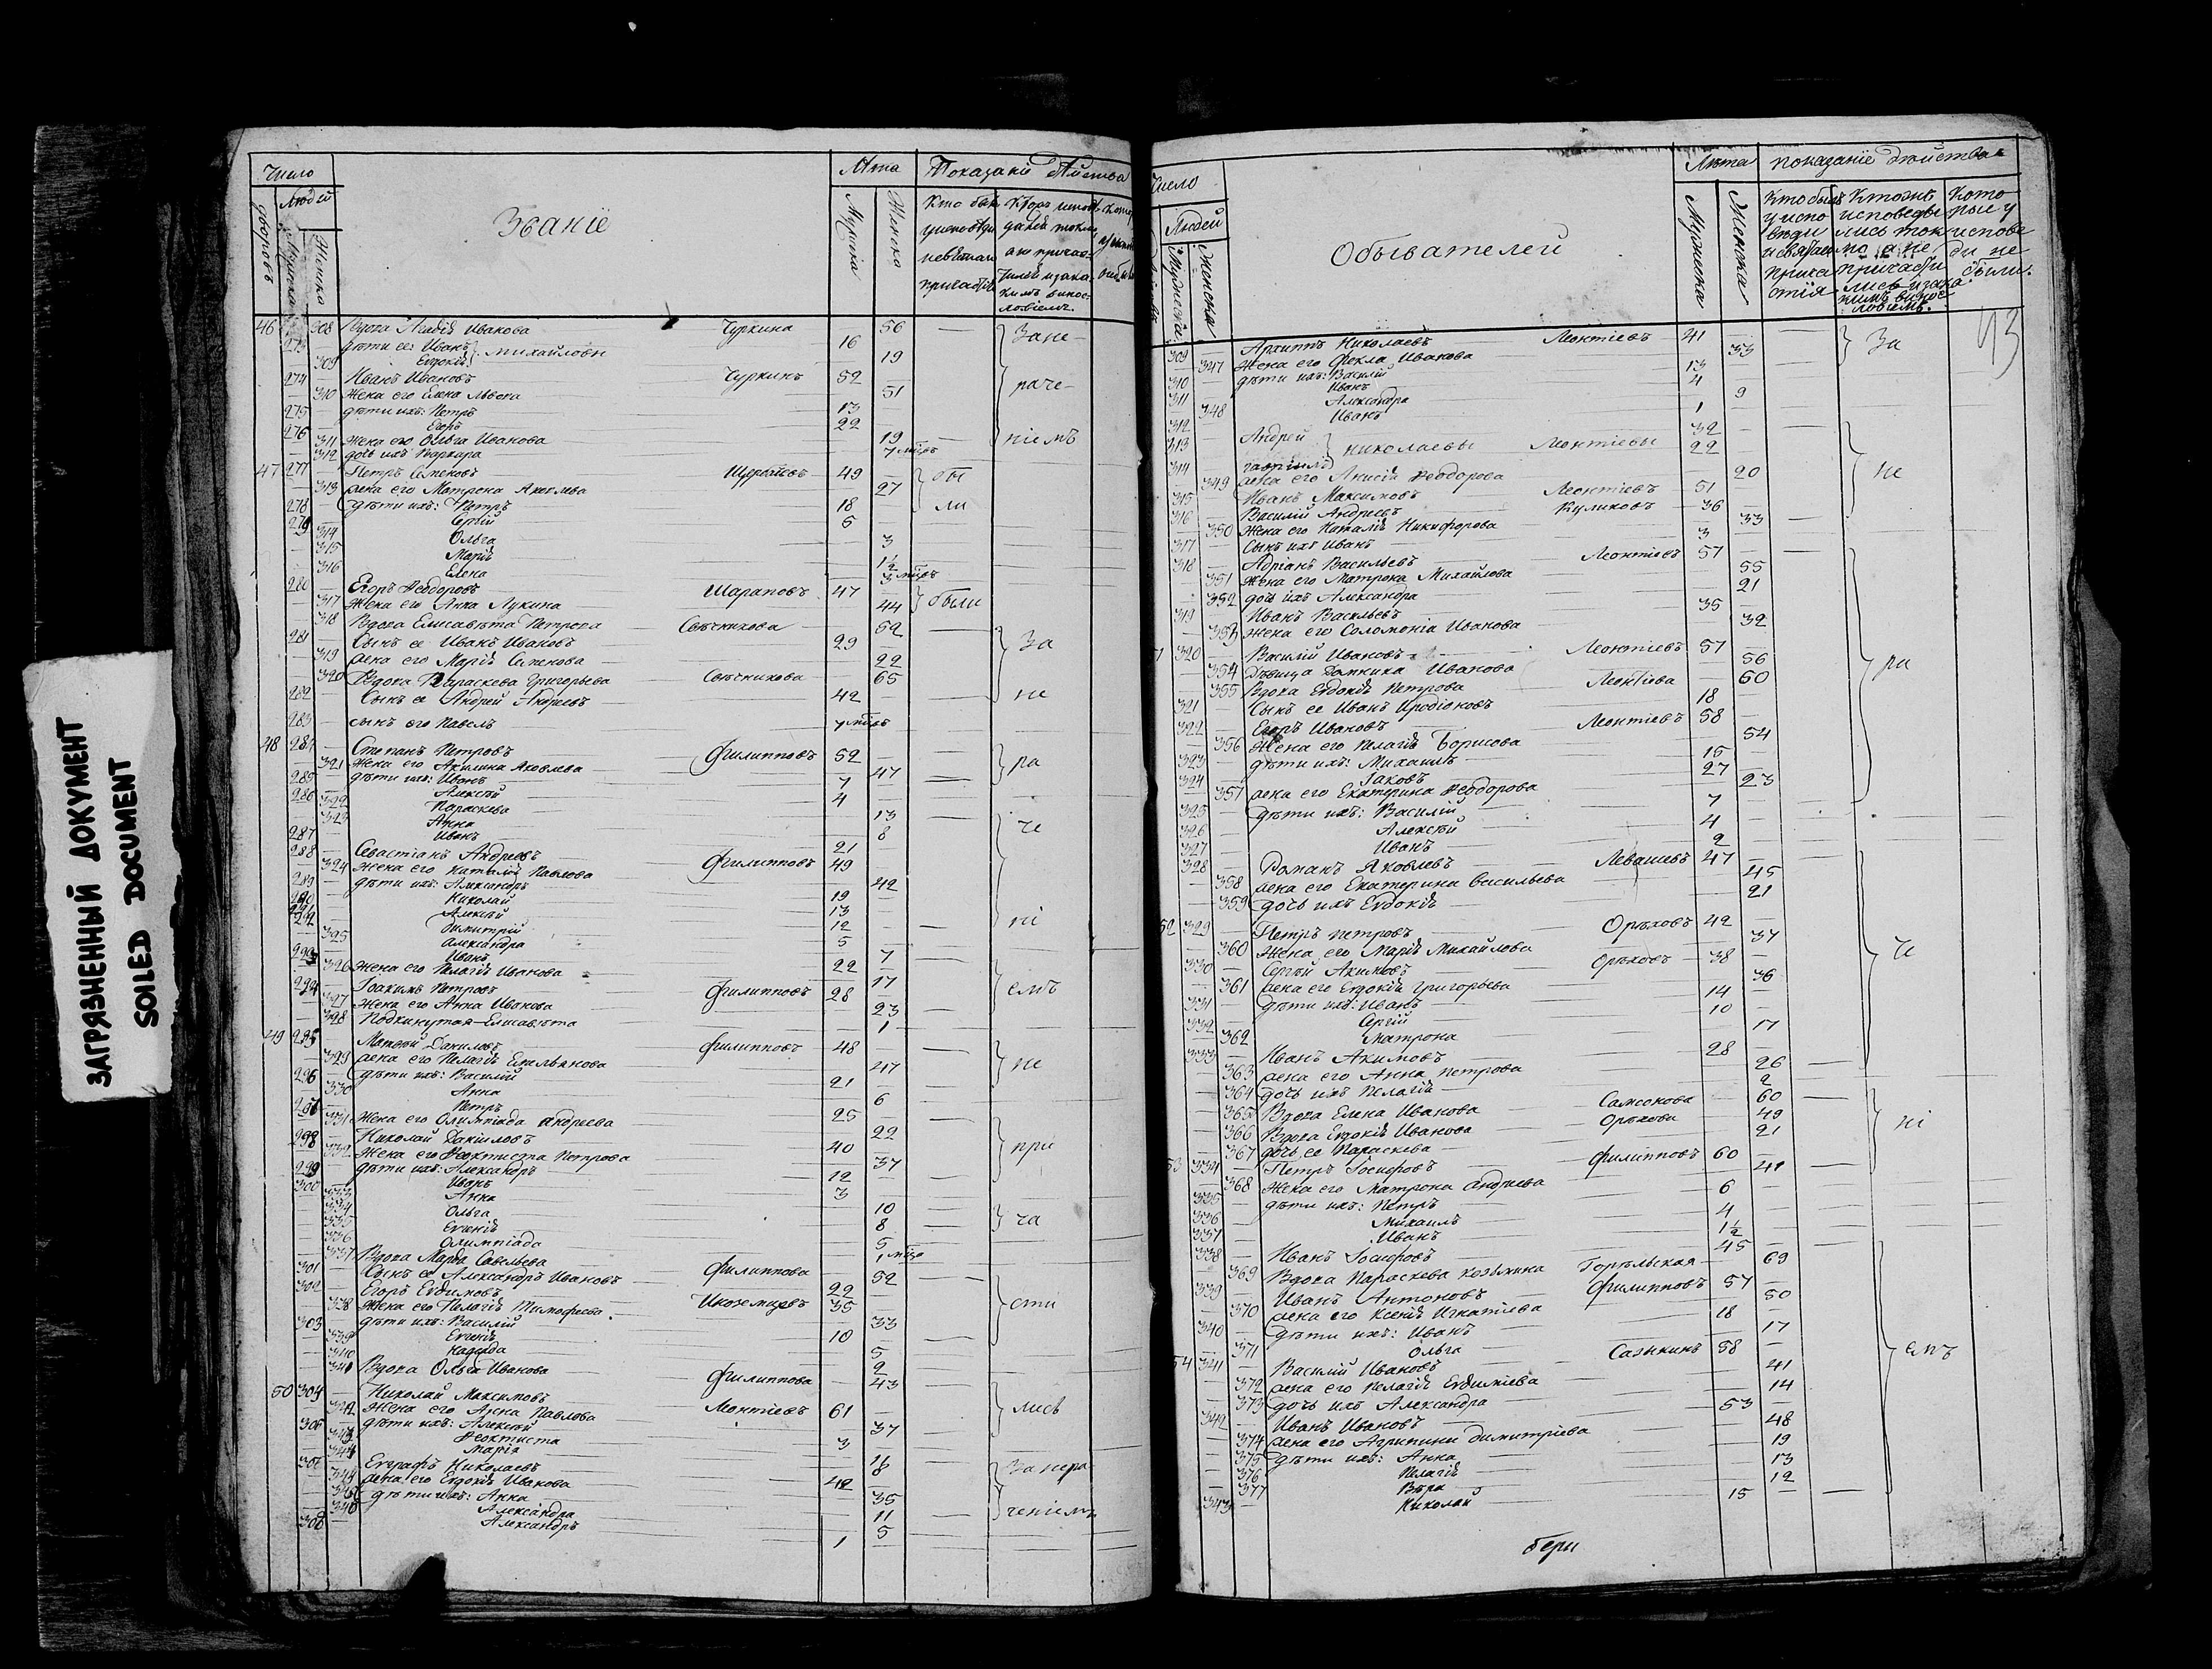 ЗАГРЯЗНЕННЫЙ ДОКУМЕНТ
SOILED DOCUMENT
Число
Людей
Званіе
Лѣта
Мужска
Женска
46 308 Вдова Иванова Чуркина 56
273 дѣти ее: Иванъ Михайловы 16
309 Евдокія 19
274 Иванъ Ивановъ Чуркинъ 52
310 жена его Елена Львова 51
275 дѣти ихъ: Петръ 13
276 Егоръ 22
311 жена его Ольга Иванова 19
312 дочь ихъ Варвара 7
47 277 Петръ Семеновъ 49
313 жена его Матрона 27
278 дѣти ихъ: Петръ 18
279 Сергій 5
314 Ольга 3
315 Марія 1½
316 Елена 3
280 Егоръ Ѳеодоровъ Шараповъ 47
317 жена его Анна Лукина 44 были
318 Вдова Елисавѣта Петрова Свѣчникова 52
281 Сынъ ее Иванъ Ивановъ 29
319 жена его Марія Семенова 22
320 Вдова Параскева Григорьева Свѣчникова 65
282 Сынъ ее Андрей Андреевъ 42
283 сынъ его Павелъ 7
48 284 Степанъ Петровъ Филипповъ 52
321 жена его Акилина Яковлева 47
285 дѣти ихъ: Иванъ 7
286 Алексѣй 4
322 Параскева 13
323 Анна 8
287 Иванъ 21
288 Севастіанъ Андреевъ Филипповъ 49
324 жена его Наталія Павлова 42
289 дѣти ихъ: Александръ 19
Николай 13
Алексѣй 12
Димитрій 5
325 Александра 7
Иванъ 22
326 жена его Пелагія Иванова 17
294 Іоакимъ Петровъ Филипповъ 28
327 жена его Анна Иванова 23
328 Подкинутая Елисавѣта 1
49 295 Матвѣй Даниловъ Филипповъ 48
329 жена его Пелагія Емельянова 47
296 дѣти ихъ: Василій 21
330 Анна 6
297 Петръ 25
331 жена его Олимпіада Андреева 22
298 Николай Даниловъ 40
332 жена его Ѳеоктиста Петрова 37
299 дѣти ихъ: Александръ 12
300 Иванъ 3
333 Анна 10
334 Ольга 8
335 Евгенія 5
336 Олимпіада 1
337 Вдова Марѳа Савельева Филиппова 52
301 Сынъ ее Александръ Ивановъ 22
302 Егоръ Евдимовъ Иноземцевъ 35
338 жена его Пелагія Тимофеева 33
303 дѣти ихъ: Василій 10
339 Евгенія 5
340 Надежда 2
341 Вдова Ольга Иванова Филиппова 43
50 304 Николай Максимовъ Леонтіевъ 61
342 жена его Анна Павлова 37
305 дѣти ихъ: Алексѣй 3
343 Ѳеоктиста
344 Марія
Евграфъ Николаевъ 42
жена его Евдокія Иванова 35
дѣти ихъ: Анна 11
Александра 5
308 Александръ 1
Число
Людей
Мужска
Женска
Обывателей
Лѣта
Показаніе дѣйства
Мужска
Женска
Кто былъ
у испо
вѣди
и святаго
прича
стія
43
309 Архиппъ Николаевъ Леонтіевъ 41
347 жена его Ѳекла Иванова 33
310 дѣти ихъ: Василій 13
311 Иванъ 4
348 Александра 9
312 Иванъ 1
313 Андрей Николаевы Леонтіевы 32
314 Гавріилъ 22
349 жена его Анисія Ѳеодорова 20
315 Иванъ Максимовъ Леонтіевъ 51
316 Василій Андреевъ Куликовъ 36
350 жена его Наталія Никифорова 33
317 Сынъ ихъ Иванъ 3
318 Адріанъ Васильевъ Леонтіевъ 57
351 жена его Матрона Михайлова 55
352 дочь ихъ Александра 21
319 Иванъ Васильевъ 35
353 жена его Соломонія Иванова 32
320 Василій Ивановъ Леонтіевъ 57
354 Дѣвица Домника Иванова 56
355 Вдова Евдокія Петрова Леонтіева 60
321 Сынъ ее Иванъ Иродіоновъ 18
322 Егоръ Ивановъ Леонтіевъ 58
356 жена его Пелагія Борисова 54
323 дѣти ихъ: Михаилъ 15
324 Іаковъ 27
357 жена его Екатерина Ѳеодорова 23
325 дѣти ихъ: Василій 7
326 Алексѣй 4
327 Иванъ 2
328 Романъ Яковлевъ Левашевъ 47
358 жена его Екатерина Васильева 45
359 дочь ихъ Евдокія 21
52 329 Петръ Петровъ Орѣховъ 42
360 жена его Марія Михайлова 37
330 Сергѣй Акимовъ Орѣховъ 38
361 жена его Евдокія Григорьева 36
331 дѣти ихъ: Иванъ 14
332 Сергій 10
362 Матрона 17
333 Иванъ Акимовъ 28
363 жена его Анна Петрова 26
364 дочь ихъ Пелагія 2
365 Вдова Елена Иванова Самсонова 60
366 Вдова Евдокія Иванова Орѣхова 49
367 дочь ее Параскева 21
53 334 Петръ Іосифовъ Филипповъ 60
368 жена его Матрона Андреева 41
335 дѣти ихъ: Петръ 6
336 Михаилъ 4
337 Иванъ 1½
338 Иванъ Іосифовъ 45
369 Вдова Параскева Горѣльская 69
339 Иванъ Антоновъ Филипповъ 57
370 жена его Ксенія Игнатіева 50
340 дѣти ихъ: Иванъ 18
371 Ольга 17
54 341 Василій Ивановъ Сазыкинъ 58
372 жена его Пелагія Евдимиева 41
373 дочь ихъ Александра 14
342 Иванъ Ивановъ 53
374 жена его Агрипина Димитріева 48
375 дѣти ихъ: Анна 19
376 Пелагія 13
377 Вѣра 12
343 Николай 15